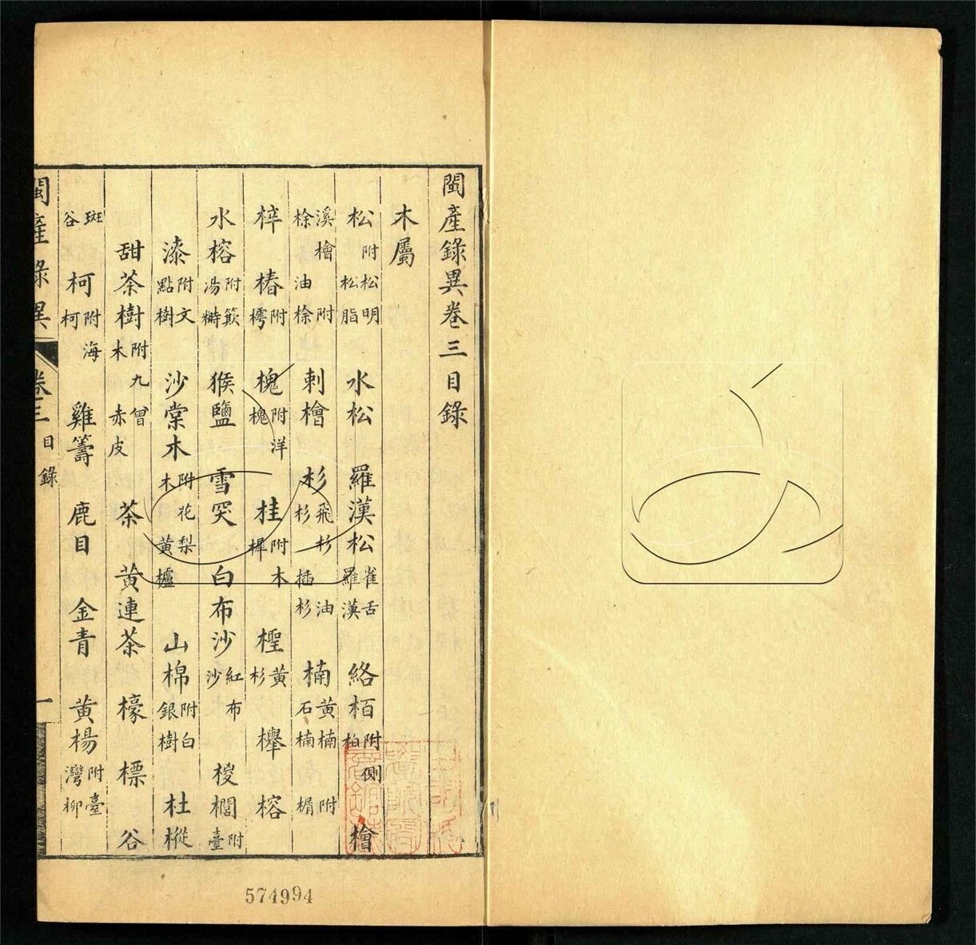 閩產錄異卷三目錄
木屬
松 附松明 松脂 水松 羅漢松 雀舌羅漢 絡栢 附側柏 檜
溪檜 附油 刺檜 杉 飛杉 油杉 插杉 楠 黃楠 石楠 附楣
梓 椿 附樗 槐 附洋槐 桂 附木樨 桱 黃杉 櫸 榕
水榕 猴鹽 雪突 白布沙 紅布沙 椶櫚 附臺
漆 附文點樹 沙棠木 附花梨木 黃櫨 山棉 附白銀樹 杜樅
甜茶樹 附九層木 赤皮 茶 黃連茶 檺 標 谷
斑谷 柯 附海柯 雞籌 鹿目 金青 黃楊 附臺灣柳
閩產錄異 卷三目錄 一
574994